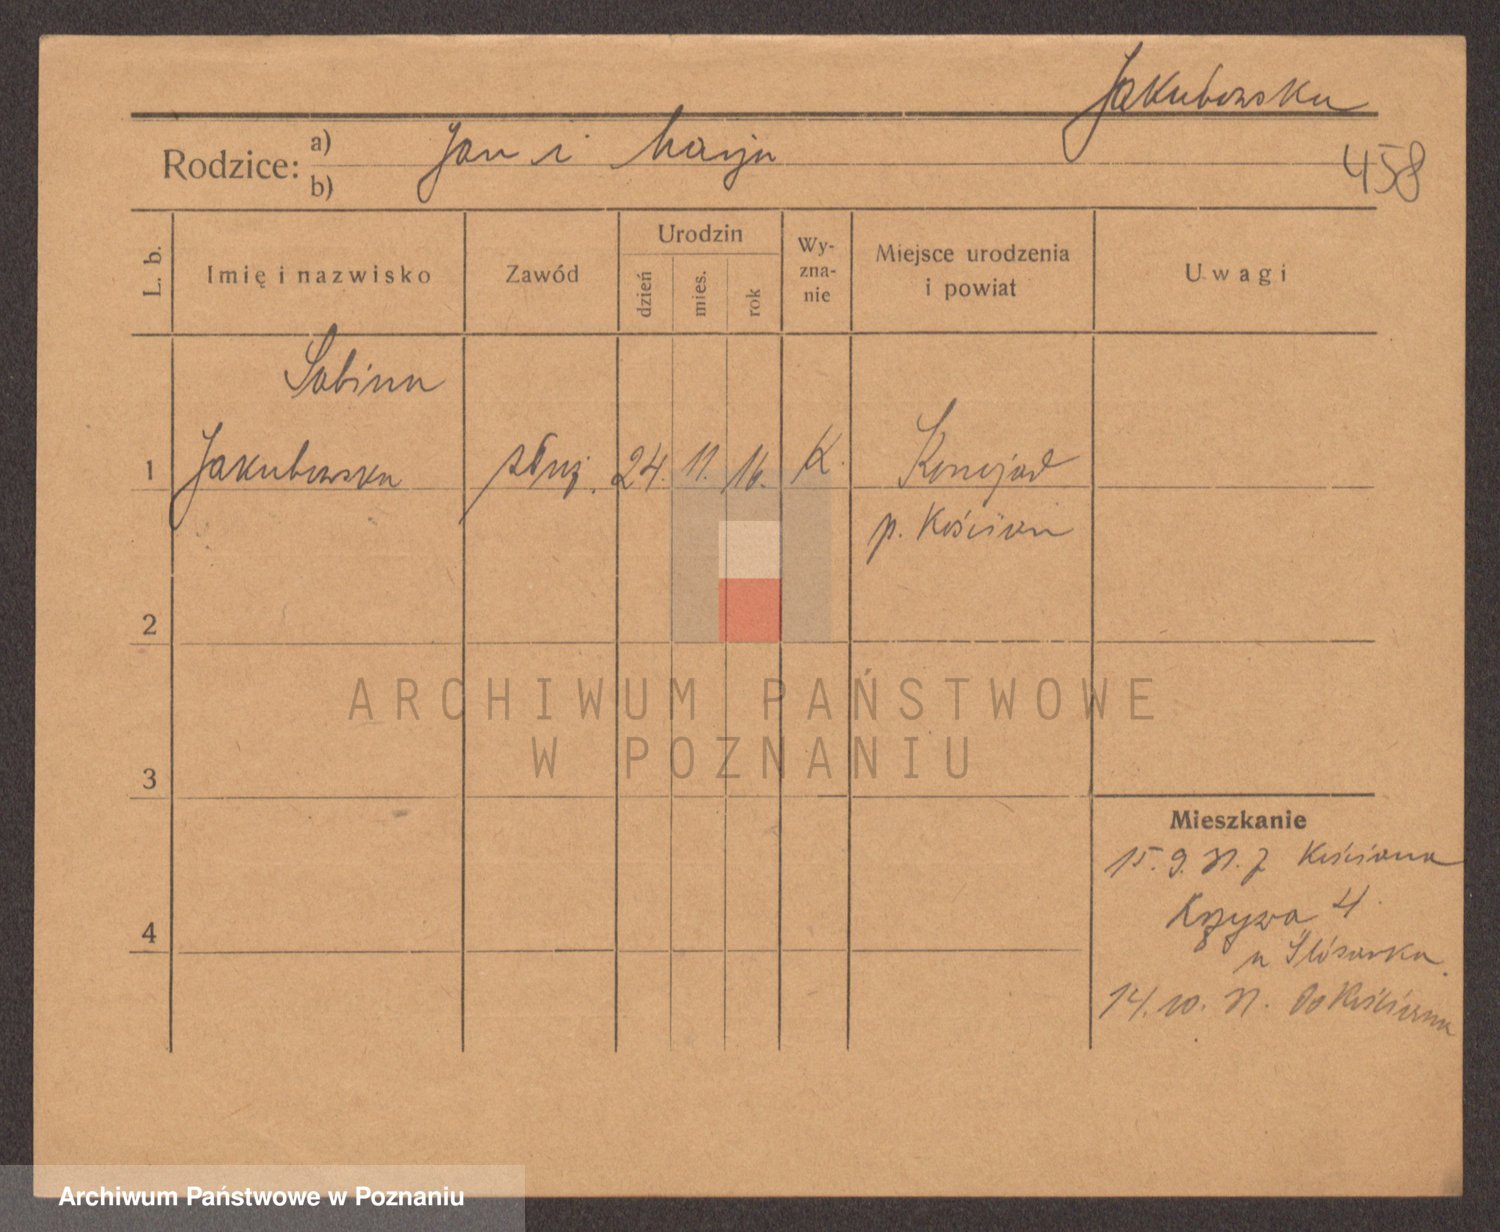 Jakubowska
Rodzice: a) Jan i Marja
b)
458
L. b.
Imię i nazwisko
Zawód
Urodzin
dzień
mies.
rok
Wy-
zna-
nie
Miejsce urodzenia
i powiat
Uwagi
Sabina
1 Jakubowska służ. 24. 11. 16. K. Konojad
p. Kościan
2
3
4
ARCHIWUM PAŃSTWOWE
W POZNANIU
Mieszkanie
15. 9. z Kościana
Krzywa 4
u Ślósarka
14. 10. do Kościana
Archiwum Państwowe w Poznaniu